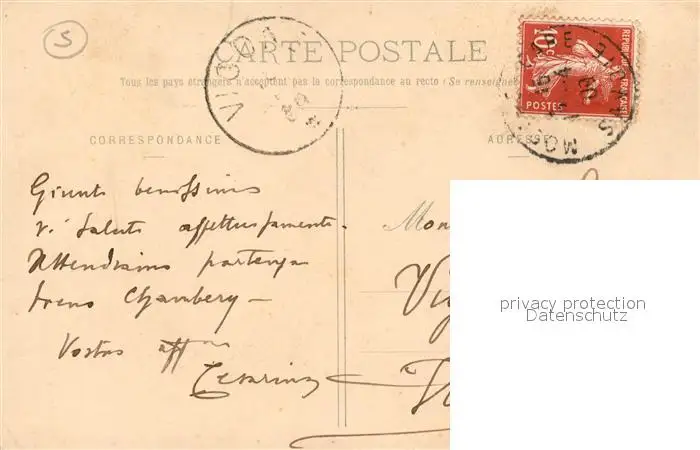 5
CARTE POSTALE
Tous les pays étrangers n'acceptent pas la correspondance au recto (Se renseigner
REPUBLIQUE FRANÇAISE
10c
POSTES
CORRESPONDANCE
ADRESSE
Giunti benissimo
Vi saluto affettuosamente.
Attendiamo partenza
treno Chambery —
Vostro aff
Cesarino
Mon
privacy protection
Datenschutz